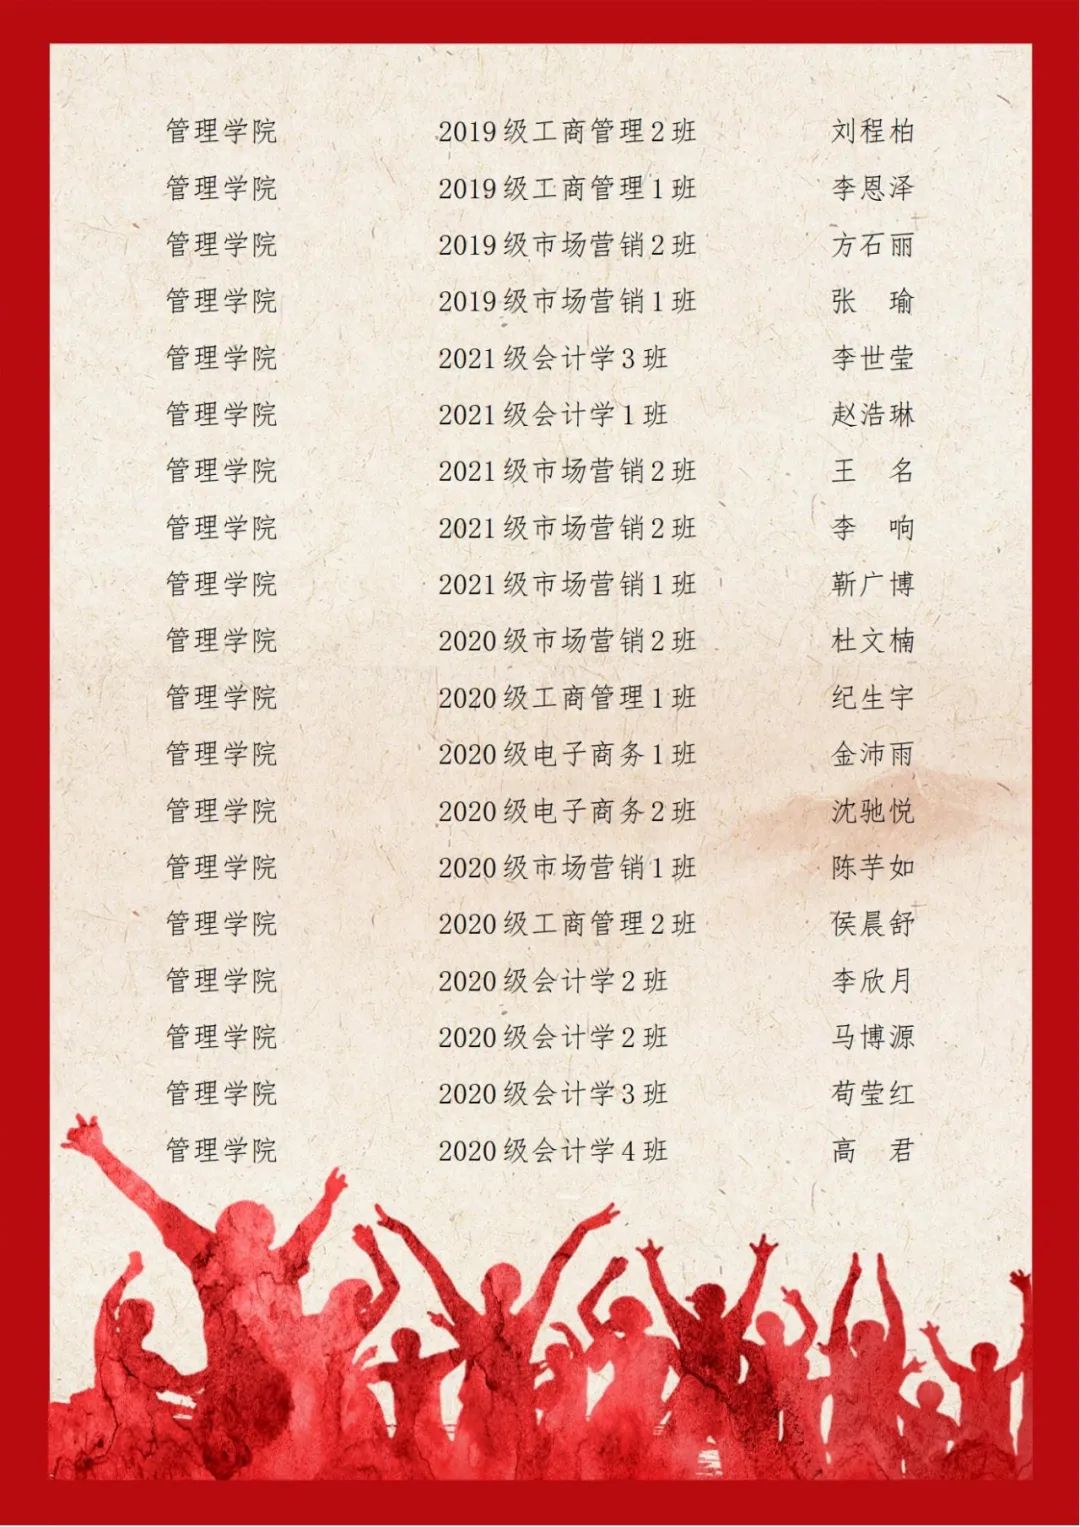 管理学院 2019级工商管理2班 刘程柏
管理学院 2019级工商管理1班 李恩泽
管理学院 2019级市场营销2班 方石丽
管理学院 2019级市场营销1班 张 瑜
管理学院 2021级会计学3班 李世莹
管理学院 2021级会计学1班 赵浩琳
管理学院 2021级市场营销2班 王 名
管理学院 2021级市场营销2班 李 响
管理学院 2021级市场营销1班 靳广博
管理学院 2020级市场营销2班 杜文楠
管理学院 2020级工商管理1班 纪生宇
管理学院 2020级电子商务1班 金沛雨
管理学院 2020级电子商务2班 沈驰悦
管理学院 2020级市场营销1班 陈芊如
管理学院 2020级工商管理2班 侯晨舒
管理学院 2020级会计学2班 李欣月
管理学院 2020级会计学2班 马博源
管理学院 2020级会计学3班 苟莹红
管理学院 2020级会计学4班 高 君